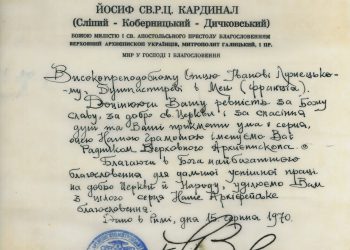 ЙОСИФ СВ.Р.Ц. КАРДИНАЛ
(Сліпий - Коберницький - Дичковський)
БОЖОЮ МИЛІСТЮ І СВ. АПОСТОЛЬСЬКОГО ПРЕСТОЛУ БЛАГОСЛОВЕННЯМ
ВЕРХОВНИЙ АРХИЄПИСКОП УКРАЇНЦІВ, МИТРОПОЛИТ ГАЛИЦЬКИЙ, І ПР.
МИР У ГОСПОДІ І БЛАГОСЛОВЕННЯ
Високопреподобному Отцю Іванові
му, в Мец (Франція).
Оцінюючи Вашу ревність за Божу
славу, за добро св. Церкви і за спасіння
душ та Ваші прикмети ума і серця,
цією Нашою грамотою іменуємо Вас
Радником Верховного Архиєпископа.
Благаючи в Бога найбагатшого
благословення для дальшої успішної праці
на добро Церкви й Народу, уділюємо Вам
з цілого серця Наше Архиєрейське
благословення.
Дано в Римі, дня 15 серпня 1970.